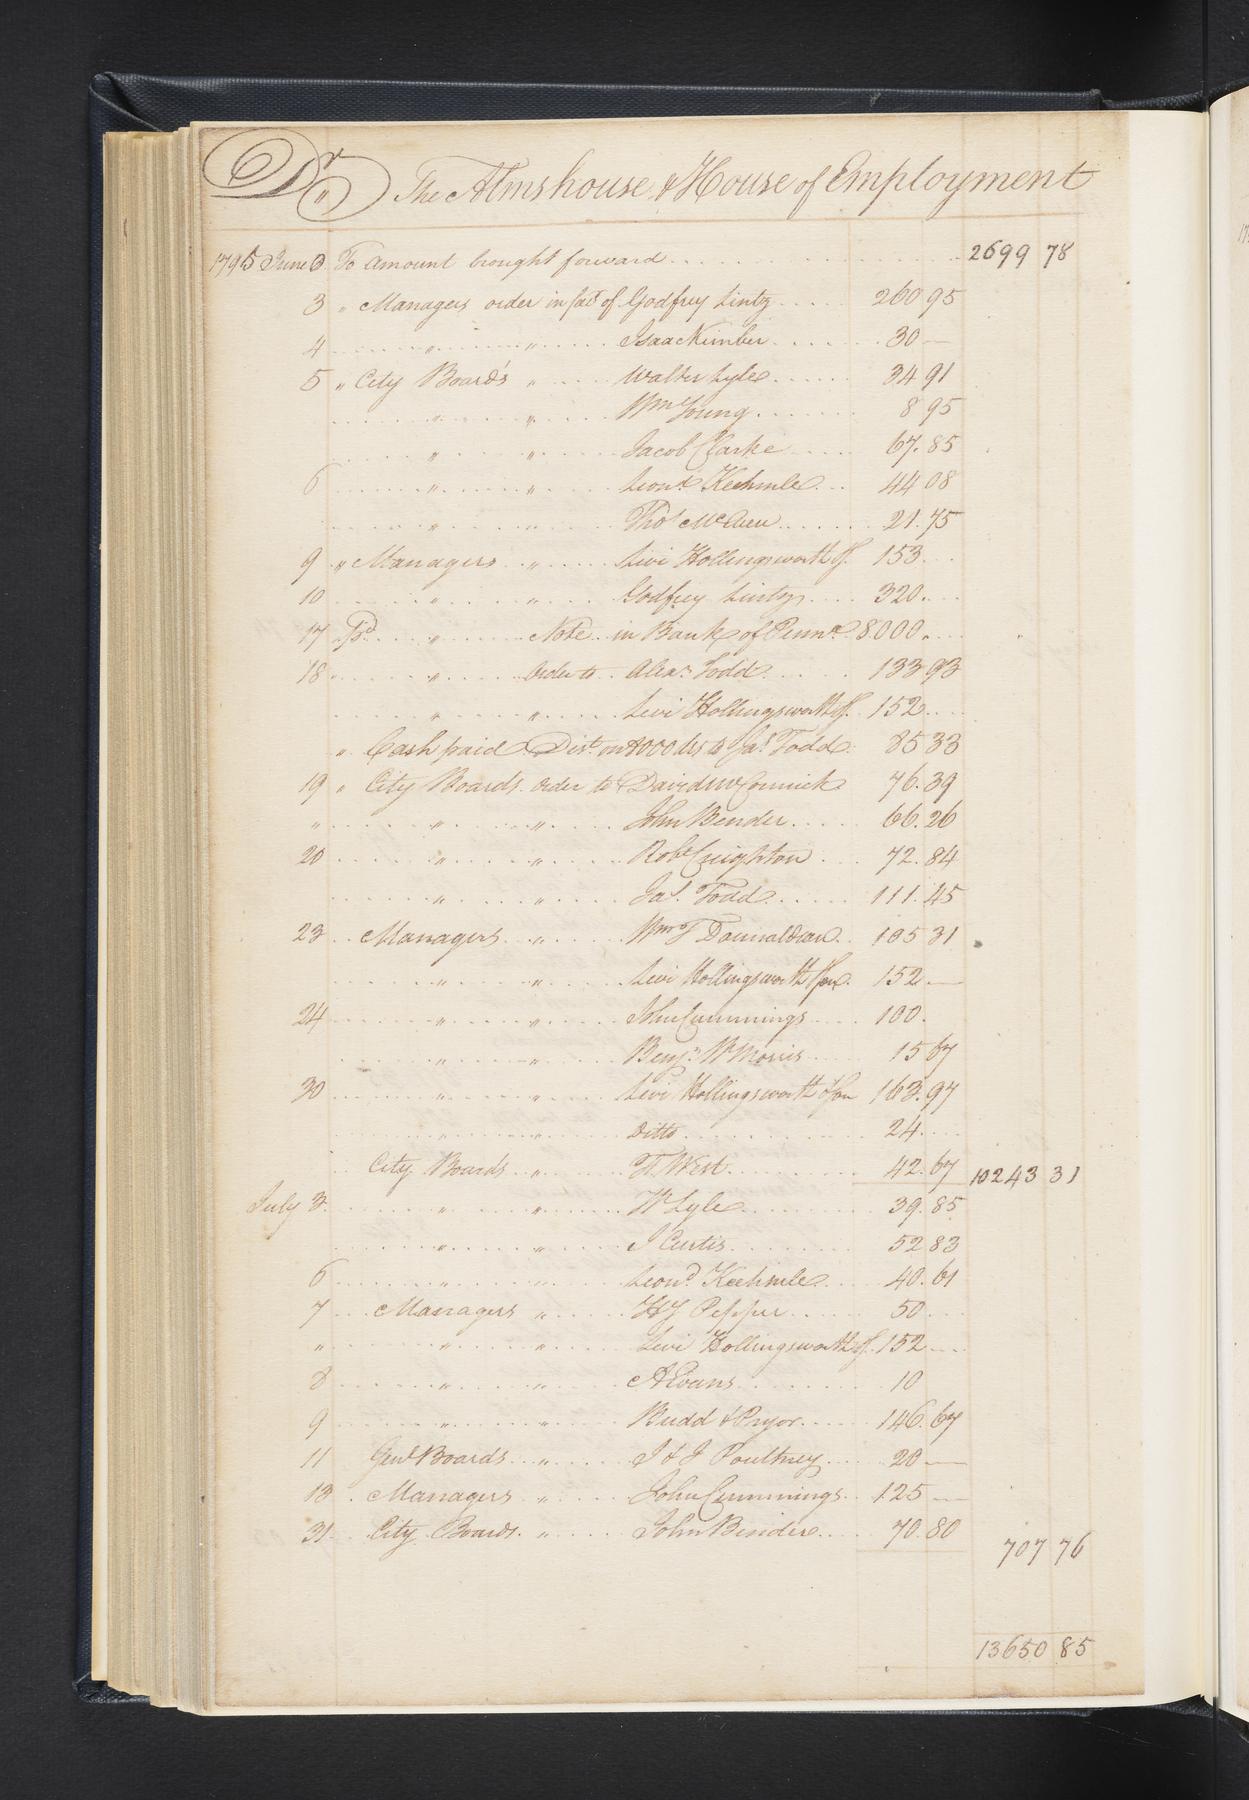 Dr The Almshouse & House of Employment
1795 June 3 To amount brought forward 2699 78
3 " Managers order in favr of Godfrey Lintz 260 95
4 " " Isaac Kimber 30 —
5 " City Board's " Walter Lyle 34 91
" " Wm Young 8 95
" " Jacob Clarke 67. 85
6 " " Leond Kechmle 44 08
" " Thos McEuen 21. 75
9 " Managers " Levi Hollingsworth & 153
10 " " Godfrey Lintz 320
17 Pd " Note in Bank of Penna 8000
18 " " Order to Alexr Todd 133 93
" " Levi Hollingsworth & 152
" Cash paid Dist on 8000 to Jas Todd 85 33
19 " City Boards order to David McCormick 76. 39
" " " John Bender 66. 26
20 " " Robt Creighton 72. 84
" " Jas Todd 111. 45
23 Managers " Wm T Donnaldson 105 31
" " Levi Hollingsworth & Son 152 —
24 " " John Cummings 100
" " Benjn W Morris 15 67
30 " " Levi Hollingsworth & Son 163. 97
" " Ditto 24
City Boards " West 42. 67 10243 31
July 3 " " W Lyle 39. 85
" " J Curtis 52 83
6 " " Leond Kechmle 40. 61
7 Managers " Pepper 50
" " " Levi Hollingsworth & 152
8 " " A Evans 10
9 " " Budd & Pryor 146. 67
11 Genl Boards " J & J Poultney 20 —
13 Managers " John Cummings 125 —
31 City Boards " John Binder 70. 80
707 76
13650 85